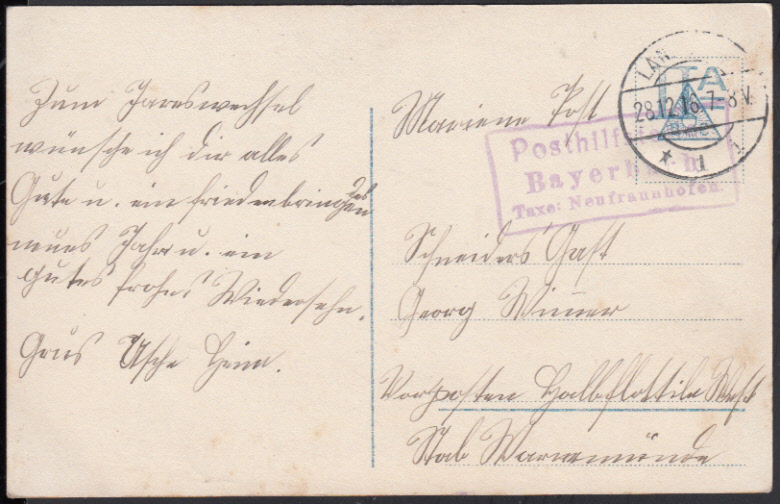 Zum Jareswechsel
wünsche ich dir alles
Gute u. ein friedenbringen
des
neues Jahr u. ein
gutes frohes Wiedersehn.
Grus Heim.
LAN
28.12.16. 7-8 V.
Posthilf
Bayerbach
Taxe: Neufraunhofen.
Mariene Post
Schneiders Gast
Georg Wimer
Vorposten Halbflottile West
Stab Warnemünde